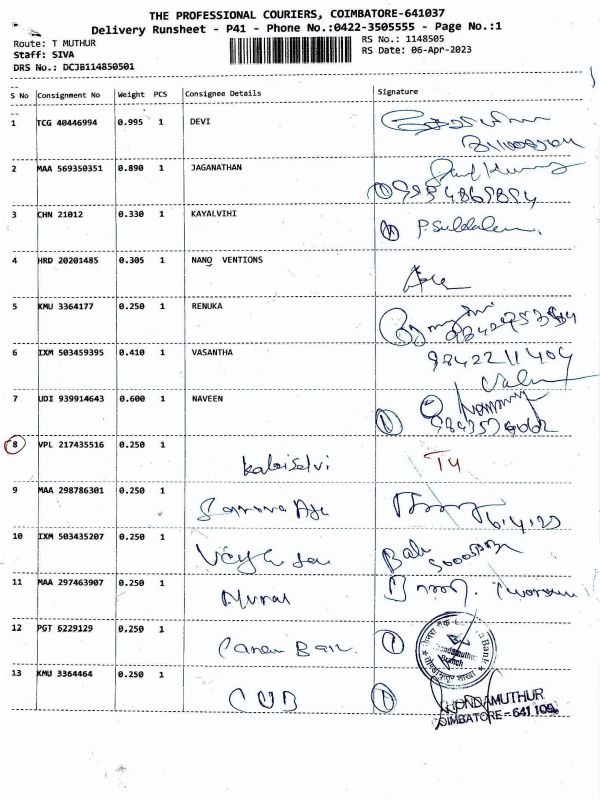 THE PROFESSIONAL COURIERS, COIMBATORE-641037
Delivery Runsheet - P41 - Phone No.:0422-3505555 - Page No.:1
Route: T MUTHUR RS No.: 1148505
Staff: SIVA RS Date: 06-Apr-2023
DRS No.: DCJB114850501
S No Consignment No Weight PCS Consignee Details Signature
1 TCG 40446994 0.995 1 DEVI
2 MAA 569350351 0.890 1 JAGANATHAN
3 CHN 21012 0.330 1 KAYALVIHI
4 HRD 20201485 0.305 1 NANO VENTIONS
5 KMU 3364177 0.250 1 RENUKA
6 IXM 503459395 0.410 1 VASANTHA 9842211404
7 UDI 939914643 0.600 1 NAVEEN
8 VPL 217435516 0.250 1 kalaiselvi T4
9 MAA 298786301 0.250 1
10 IXM 503435207 0.250 1
11 MAA 297463907 0.250 1 Murali
12 PGT 6229129 0.250 1 Canara Bank
13 KMU 3364464 0.250 1 CUB
THONDAMUTHUR
COIMBATORE - 641 109